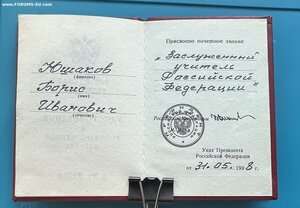 www.FORUMS-SU.com
Юшаков
(фамилия)
Борис
(имя)
Иванович
(отчество)
Присвоено почетное звание
„Заслуженный
учитель
Российской
Федерации"
Указ Президента
Российской Федерации
от 31.05.1998 г.